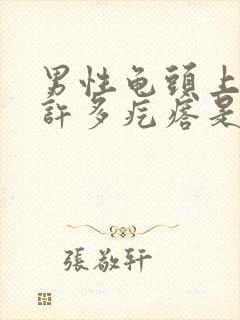 男性龟頭上
許多疙瘩是
張敬軒